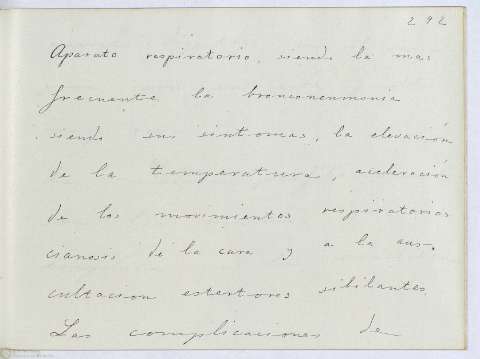 292
Aparato respiratorio, siendo la mas
frecuente la bronconeumonia
siendo sus sintomas, la elevación
de la temperatura, aceleración
de los movimientos respiratorios
cianosis de la cara y a la aus-
cultacion estertores sibilantes
Las complicaciones de